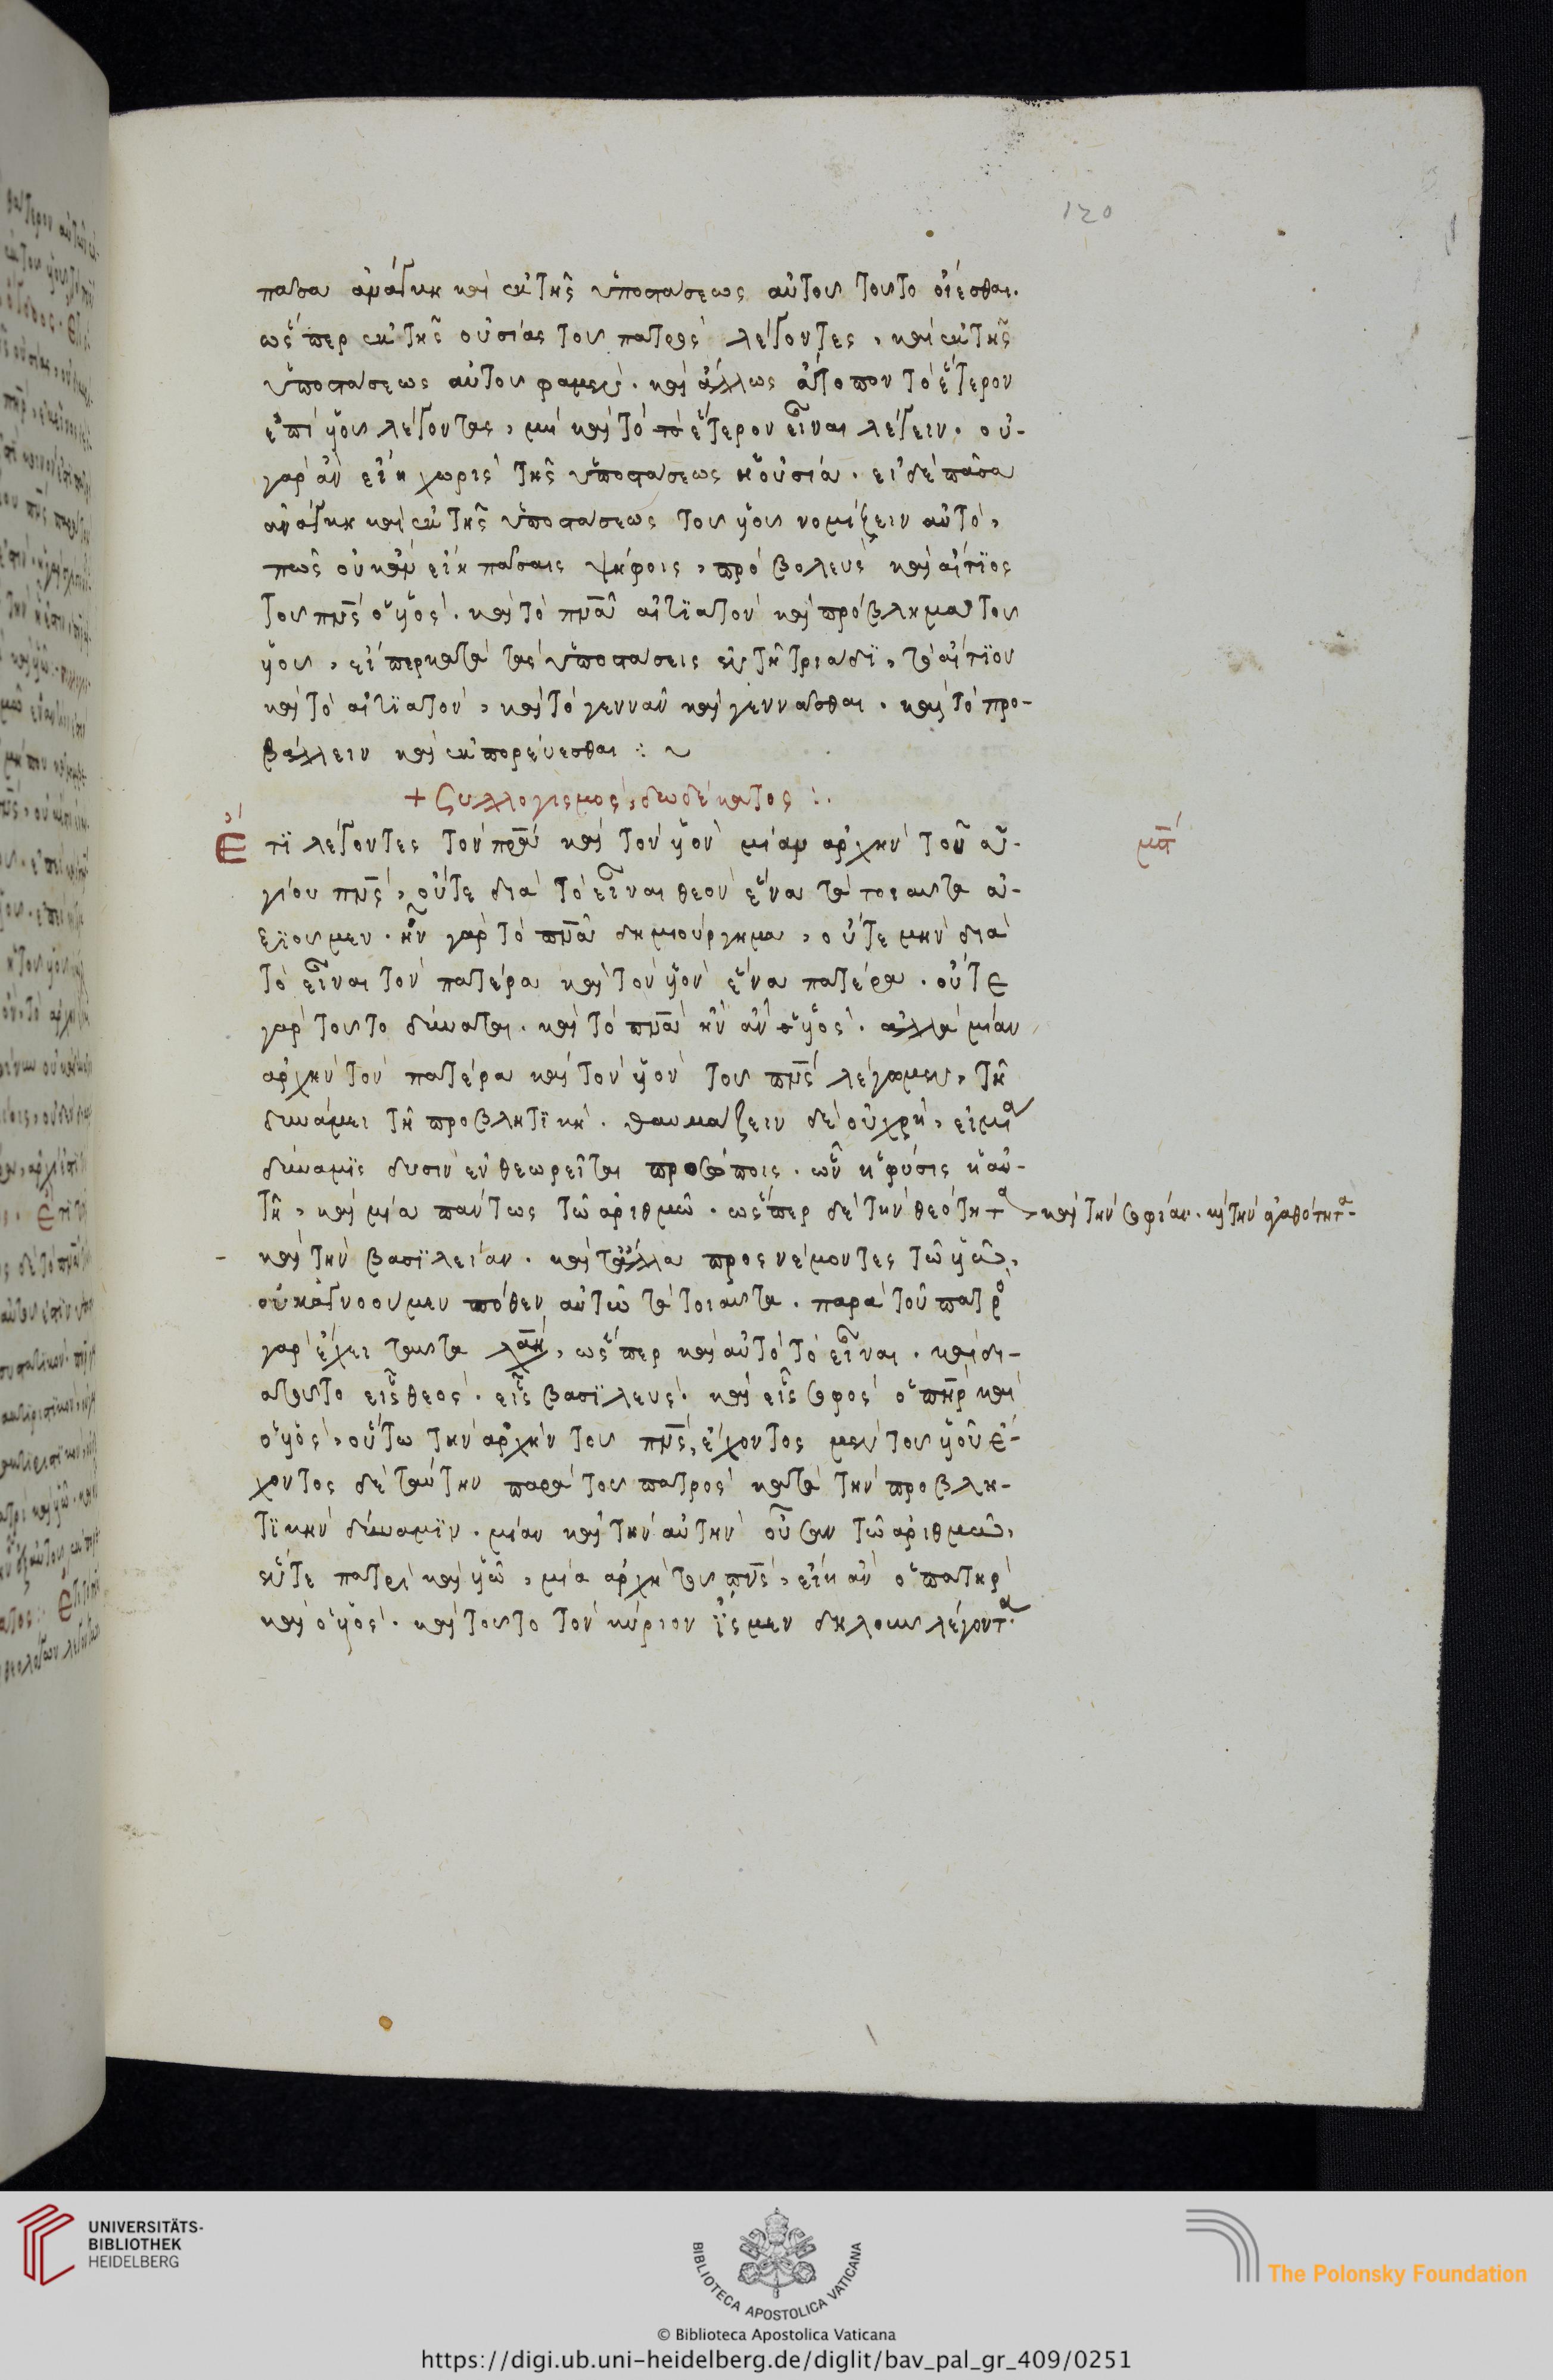 120
πᾶσα ἀνάγκη καὶ ἐκ τῆς ὑποστάσεως αὐτοῦ τοῦτο οἴεσθαι.
ὥσπερ ἐκ τῆς οὐσίας τοῦ πατρὸς λέγοντες, καὶ ἐκ τῆς
ὑποστάσεως αὐτοῦ φαμεν. καὶ ἄλλως ἄτοπον τὸ ἕτερον
ἐπὶ υἱοῦ λέγοντας, μὴ καὶ τὸ ἕτερον εἶναι λέγειν. οὐ-
γὰρ ἂν εἴη χωρὶς τῆς ὑποστάσεως ἡ οὐσία. εἰ δὲ πᾶσα
ἀνάγκη καὶ ἐκ τῆς ὑποστάσεως τοῦ υἱοῦ νομίζειν αὐτό,
πῶς οὐκ ἂν εἴη πάσαις ψήφοις, προβολεὺς καὶ αἴτιος
τοῦ πνς ὁ υἱός. καὶ τὸ πνα αἰτιατὸν καὶ πρόβλημα τοῦ
υἱοῦ, εἴπερ κατὰ τὰς ὑποστάσεις ἐν τῇ τριάδι, τὸ αἴτιον
καὶ τὸ αἰτιατόν, καὶ τὸ γεννᾶν καὶ γεννᾶσθαι. καὶ τὸ προ-
βάλλειν καὶ ἐκπορεύεσθαι :~
+ Συλλογισμὸς δωδέκατος :.
Ἔτι λέγοντες τὸν πρα καὶ τὸν υἱὸν μίαν ἀρχὴν τοῦ ἁ-
μα
γίου πνς, οὔτε διὰ τὸ εἶναι θεὸν ἕνα τὰ τοιαῦτα ἀ-
ξιοῦμεν. ἦν γὰρ τὸ πνα δημιούργημα, οὔτε μὴν διὰ
τὸ εἶναι τὸν πατέρα καὶ τὸν υἱὸν ἕνα πατέρα. οὔτε
γὰρ τοῦτο δύναται. καὶ τὸ πνα ἦν ἂν υἱός. ἀλλὰ μίαν
ἀρχὴν τὸν πατέρα καὶ τὸν υἱὸν τοῦ πνς λέγομεν, τῇ
δυνάμει τῇ προβλητικῇ. θαυμάζειν δὲ οὐ χρή, εἰ μία
δύναμις δυσὶν ἐνθεωρεῖται προσώποις. ὧν ἡ φύσις ἡ αὐ-
τή, καὶ μία πάντως τῷ ἀριθμῷ. ὥσπερ δὲ τὴν θεότητα, καὶ τὴν σοφίαν. καὶ τὴν ἀγαθότητα.
καὶ τὴν βασιλείαν. καὶ τἄλλα προσνέμοντες τῷ υἱῷ,
οὐκ ἀγνοοῦμεν πόθεν αὐτῷ τὰ τοιαῦτα. παρὰ τοῦ πατρὸ
γὰρ ἔχει ταῦτα , ὥσπερ καὶ αὐτὸ τὸ εἶναι. καὶ δι-
ὰ τοῦτο εἷς θεός. εἷς βασιλεύς. καὶ εἷς σοφὸς ὁ πηρ καὶ
ὁ υἱός, οὕτω τὴν ἀρχὴν τοῦ πνς, ἔχοντος μὲν τοῦ υἱοῦ ἔ-
χοντος δὲ ταύτην παρὰ τοῦ πατρὸς κατὰ τὴν προβλη-
τικὴν δύναμιν. μίαν καὶ τὴν αὐτὴν οὖσαν τῷ ἀριθμῷ,
ἔν τε πατρὶ καὶ υἱῷ, μία ἀρχὴ τοῦ πνς, εἴη ἂν ὁ πατὴρ
καὶ ὁ υἱός. καὶ τοῦτο τὸν κύριον ἴσμεν δηλοῦν λέγοντα.
UNIVERSITÄTS-
BIBLIOTHEK
HEIDELBERG
BIBLIOTECA APOSTOLICA VATICANA
The Polonsky Foundation
© Biblioteca Apostolica Vaticana
https://digi.ub.uni-heidelberg.de/diglit/bav_pal_gr_409/0251